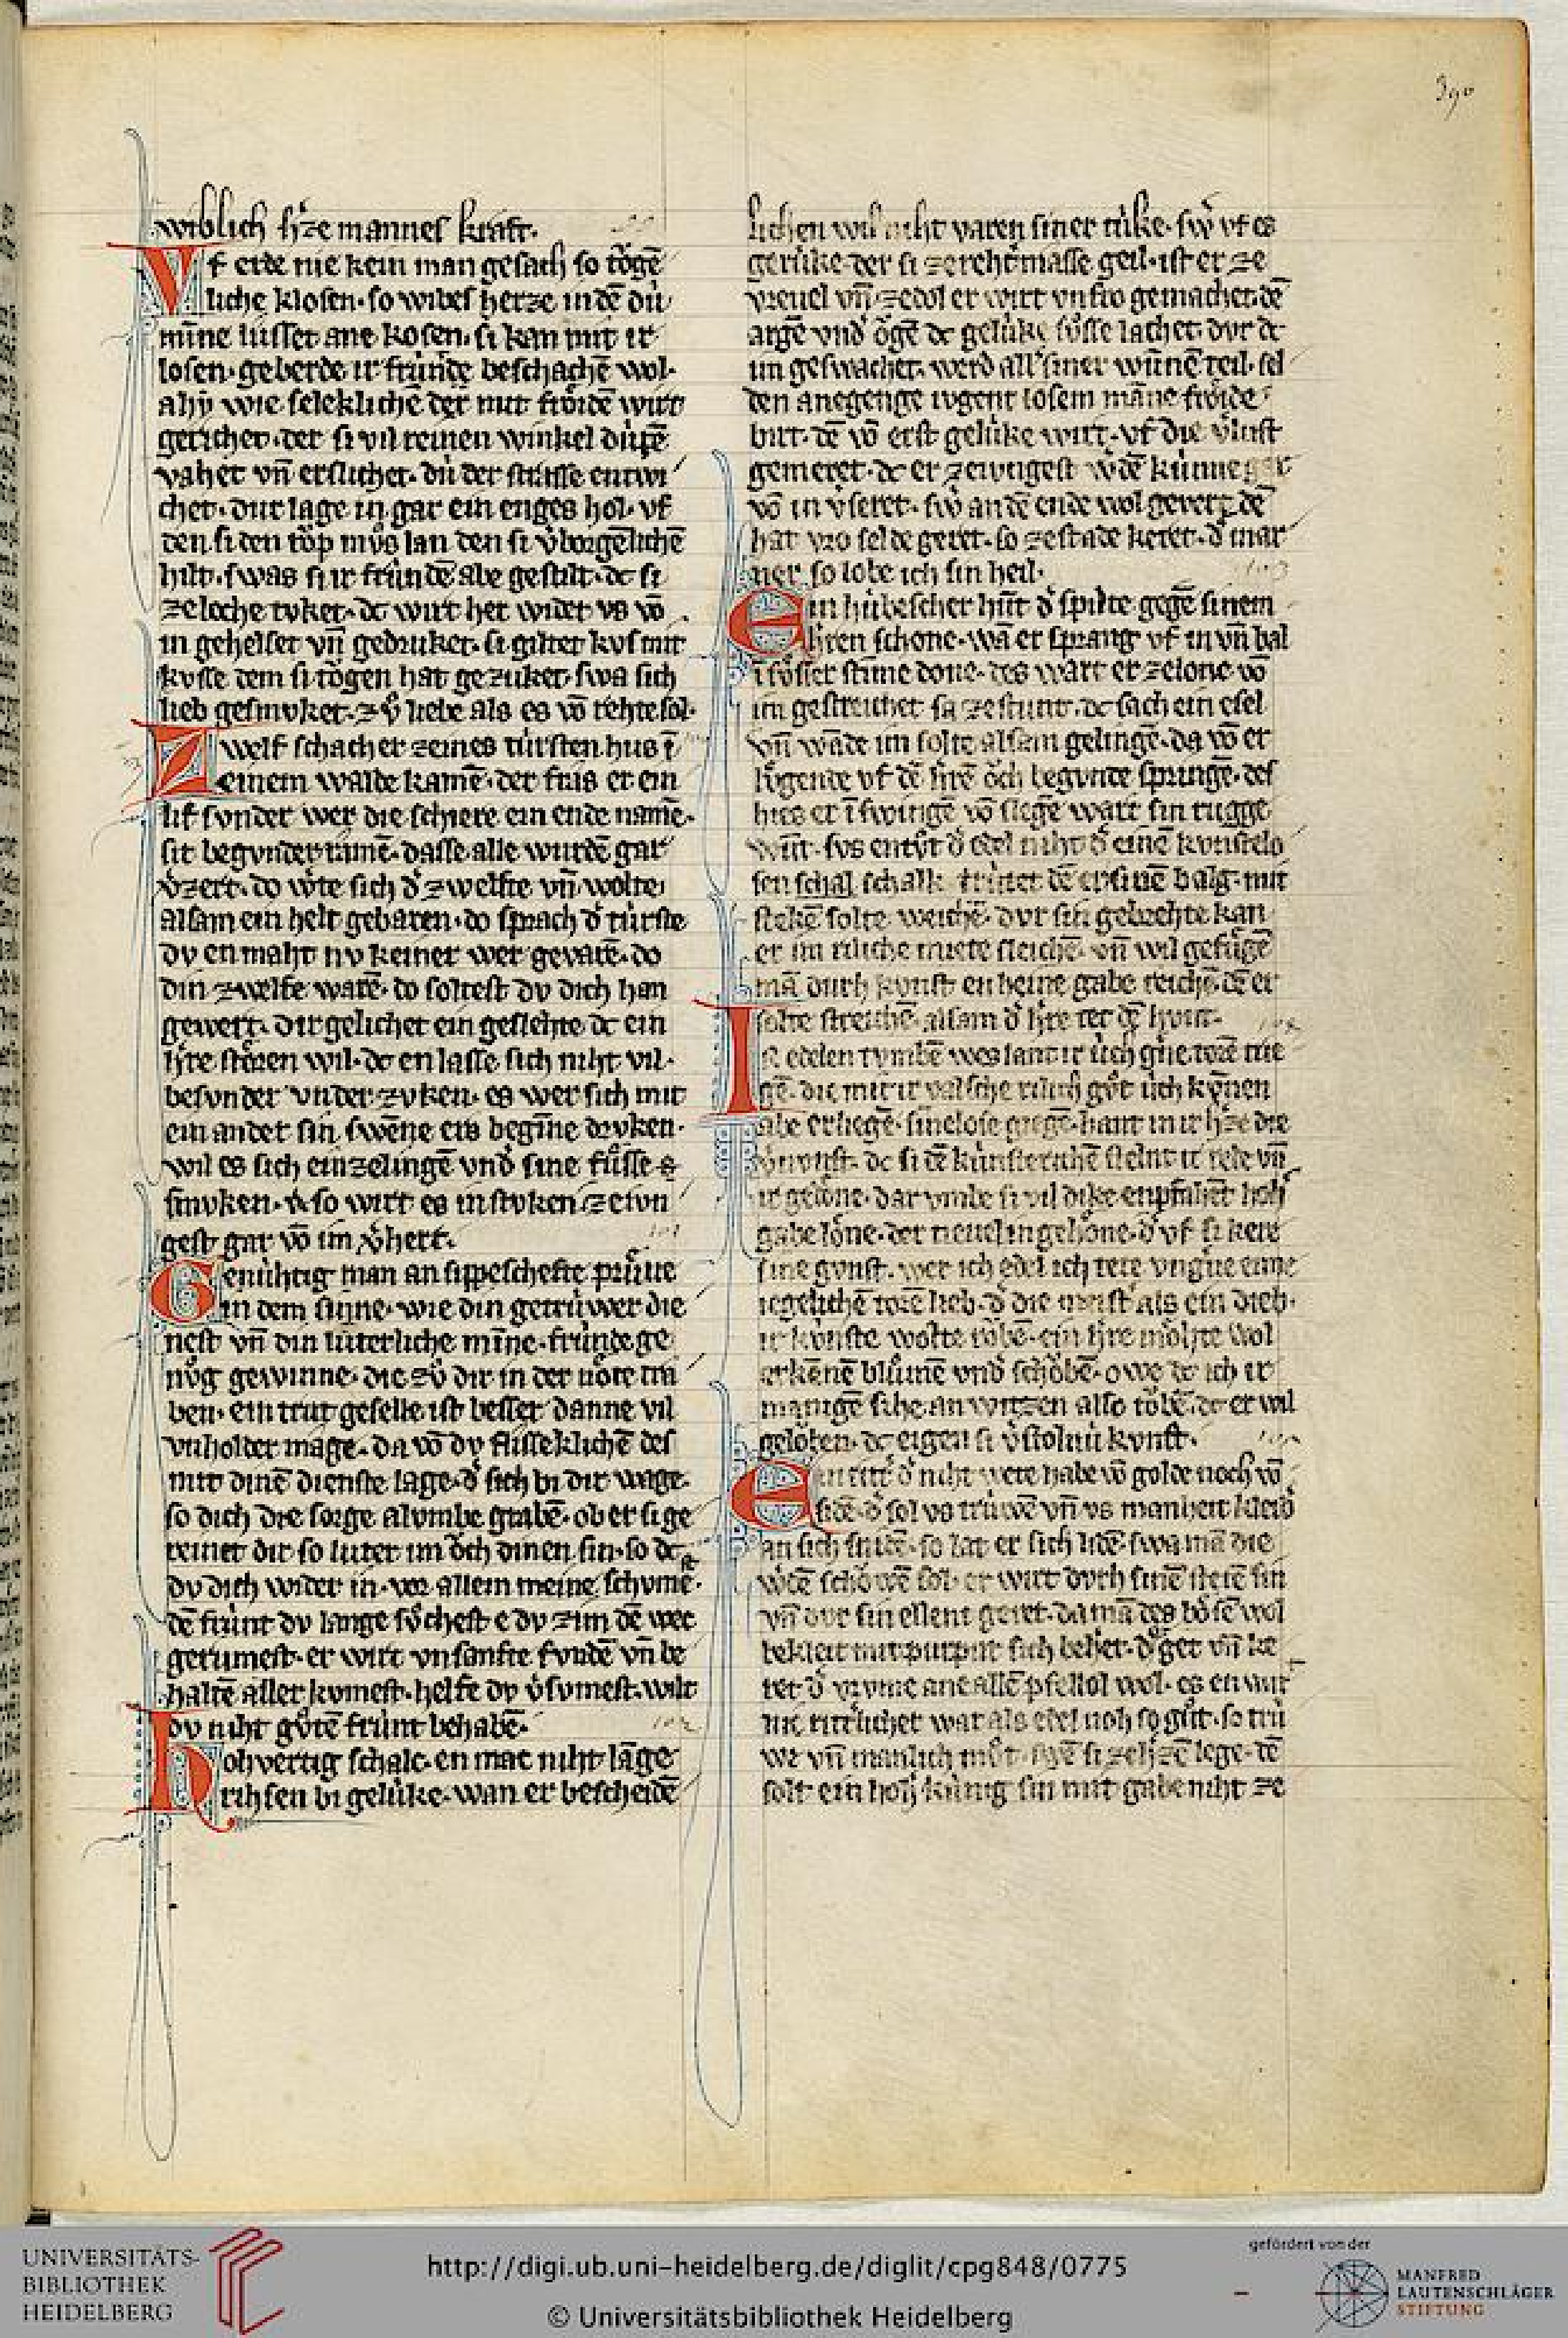 390
wiblich h'ze mannes kraft.
Vf erde nie kein man gesach so togē
liche klosen. so wibes herze in dē dú
mīne lússet ane kosen. si kan mit ir
losen. geberde ir frúnde beschachē wol.
ahy wie seleklichē der mit froidē wirt
gerichet. der si vil reinen winkel
vahet vn̄ erslichet. dú der strasse entwi
chet. dur lage in gar ein enges hol. vf
den si den mv̊s lan den si v̓borgēlichē
hilt. swas si ir frúndē abe gestilt. dc si
zeloche roket. dc wirt her wider vs vō
in gehelset vn̄ gedruket. si giltet kvs mit
kvsse dem si togen hat gezuket. swa sich
lieb gesmvket. zv̊ liebe als es vō rehte sol.
Zwelf schacher zeines túrsten hus ī
einem walde kamē. der fras er ein
lif svnder wer die schiere ein ende namē.
sit begvnder ramē. dasse alle wurdē gar
v̓zert. do wte sich d̓ zwelfte vn̄ wolte
alsam ein helt gebaren. do sprach d̓ túrste
dv en maht nv keiner wer gevarē. do
din zwelfe warē. do soltest dv dich han
gewert. dir gelichet ein geslehte dc ein
h're stören wil. dc en lasse sich niht vil.
besvnder vnder zvken. es wer sich mit
ein ander sin. swēne ers begīne drvken.
wil es sich einzelingē vnd̓ sine fússe
smvken. so wirt es in stvken zeivn
gest gar vō im v̓hert.
Genúhtig man an sippeschefte prúue
in dem sinne. wie din getrúwer die
nest vn̄ din luterliche mīne. frúnde ge
nv̊g gewinne. die zv̊ dir in der nöte tri
ben. ein trut geselle ist besser danne vil
vnholder mage. da vō dv flisseklichē des
mit dinē dienste lage. d̓ sich bi dir wage.
so dich die sorge alvmbe grabē. ob er si ge
reinet dir so luter im och dinen sin. so dc
dv dich wider in. vor allem meine schvme.
dē frúnt dv lange sv̊chest e dv zim dē wec
gerumest. er wirt vnsanfte fvndē vn̄ be
haltē aller kvmest. helfe dv v̓svmest. wilt
dv niht gv̊tē frúnt behabē.
Hohvertig schalc. en mac niht lāge
rihsen bi gelúke. wan er bescheidē
lichen wil niht varen siner túke. sw̓ vf es
gerúke. der si zereht̓ masse geil. ist er ze
vreuel vn̄ zedol er wirt vnfro gemachet. dē
argē vnd̓ ogē dc gelúke sv̊sse lachet. dvr dc
im geswachet. werd all̓ siner wúnnē teil. sel
den anegenge tvgent losem māne froide
birt. dē vō erst gelúke wirt. vf die v̓lust
gemeret. dc er zeivngest w̓dē kúnne gar
vō in v̓seret. sw̓ an dē ende wol gevert. dē
hat vro selde geret. so zestade keret. d̓ mar
ner so lobe ich sin heil.
Ein húbescher hvnt d̓ spilte gegē sinem
h'ren schone. wā er sprang vf in vn̄ bal
ī sv̊sser stīme done. des wart er zelone vō
im gestreichet sa zestunt. dc sach ein esel
vn̄ wāde im solte alsam gelingē. da vō er
lv̊gende vf dē h'rē och begvnte springē. des
hies er ī swingē vō slegē wart sin rugge
wūt. svs entv̊t d̓ edel niht d̓ einē kvnstelo
sen schal schalk trútet dē er sinē balg. mit
stekē solte weichē. dvr sin gebrehte kan
er im riliche miete sleichē. vn̄ wil gefv̊gē
mā durh kvnst en heine gabe reichē. dē er
solte streichē. alsam d̓ h're tet dē hvnt.
Ir edelen tvmbē wes lant ir úch gn̓e torē trie
gē. die mit ir valsche rilich gv̊t úch kvnnen
abe erliegē. sinelose giegē. hant in ir h'ze die
v̓nvnst. dc si dē kúnsterichē stelnt ir rede vn̄
ir gedöne. dar vmbe si vil dike enpfahēt hoh
gabe löne. der neuelin gehöne. d̓ vf si kere
sine gvnst. wer ich edel ich tete vngn̓e eime
iegelichē torē lieb. d̓ die meist̓ als ein dieb.
ir kúnste wolte robē. ein h're möhte wol
erkēnē blv̊mē vnd̓ schobē. owe dc ich ir
manigē sihe an witzen also tobē. dc er wil
geloben. dc eigen si v̓stolnú kvnst.
Ein ritt̓ d̓ niht wete habe vō golde noch vō
sidē. d̓ sol vs trúwē vn̄ vs manheit kleid̓
an sich snidē. so lat er sich lidē. swa mā die
w̓dē schowē sol. er wirt dvrh sinē sin
vn̄ dvr sin ellent geret. da mā des bösē wol
bekleit mit purpur sich behet. d̓ get vn̄ ke
ret d̓ vrvme ane allē pfellol wol. es en wirt
nie ritt̓lichet war als edel noh so gv̊t. so trú
we vn̄ manlich mv̊t. swē si zeh'zē lege. dē
solt ein hoh̓ kúnig sin mit gabe niht ze
UNIVERSITÄTS-
BIBLIOTHEK
HEIDELBERG
http://digi.ub.uni-heidelberg.de/diglit/cpg848/0775
© Universitätsbibliothek Heidelberg
gefördert von der
MANFRED
LAUTENSCHLÄGER
STIFTUNG